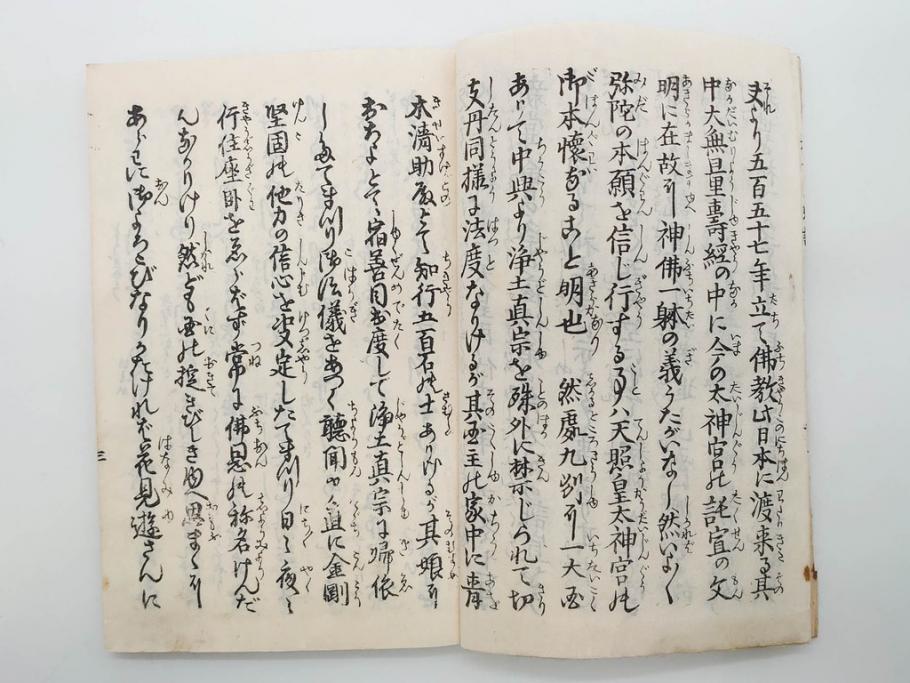 夫より五百五十七年立て佛教此日本に渡来る其
中大無量壽經の中に今の太神宮の託宣の文
明に在故に神佛一躰の義うたがいなし然ば
弥陀の本願を信じ行する事ハ天照皇太神宮の
御本懐なること明也 然處九州に一大国
ありて中興より浄土真宗を殊外に禁じられて切
支丹同様に法度なりけるが其国主の家中に青
木濟助殿とて知行五百石の士ありけるが其娘に
おちよとて宿善目出度して浄土真宗に帰依
しまて御法儀をあつく聴聞 に金剛
堅固の他力の信心を决定したてまつり日々夜々
行住座臥をゑらばず常に佛恩の称名けんだ
んなかりけり然ども国の掟きびしき ゆへ思ままに
あらはに御よろこびなりがたければ花見遊さんに
三